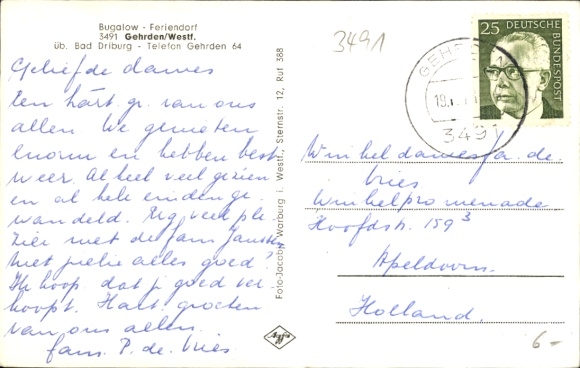 Bugalow - Feriendorf
3491 Gehrden/Westf.
üb. Bad Driburg - Telefon Gehrden 64
Geliefde dames
Een hart. gr. van ons
allen We genieten
enorm en hebben best
weer Al heel veel gezien
en al hele einden ge
wandeld. Erg veel ple
zier met de fam Jansen
Met jullie alles goed?
Ik hoop dat je goed ver
koopt. Hart. groeten
van ons allen.
fam. P. de Vries
Foto-Jacobi, Warburg i. Westf., Sternstr. 12, Ruf 388
Agfa
3491
GEHR
19.
3491
25 DEUTSCHE
BUNDESPOST
Winkeldames fa. de
Vries
Winkelpromenade
Hoofdstr. 159³
Apeldoorn.
Holland.
6-